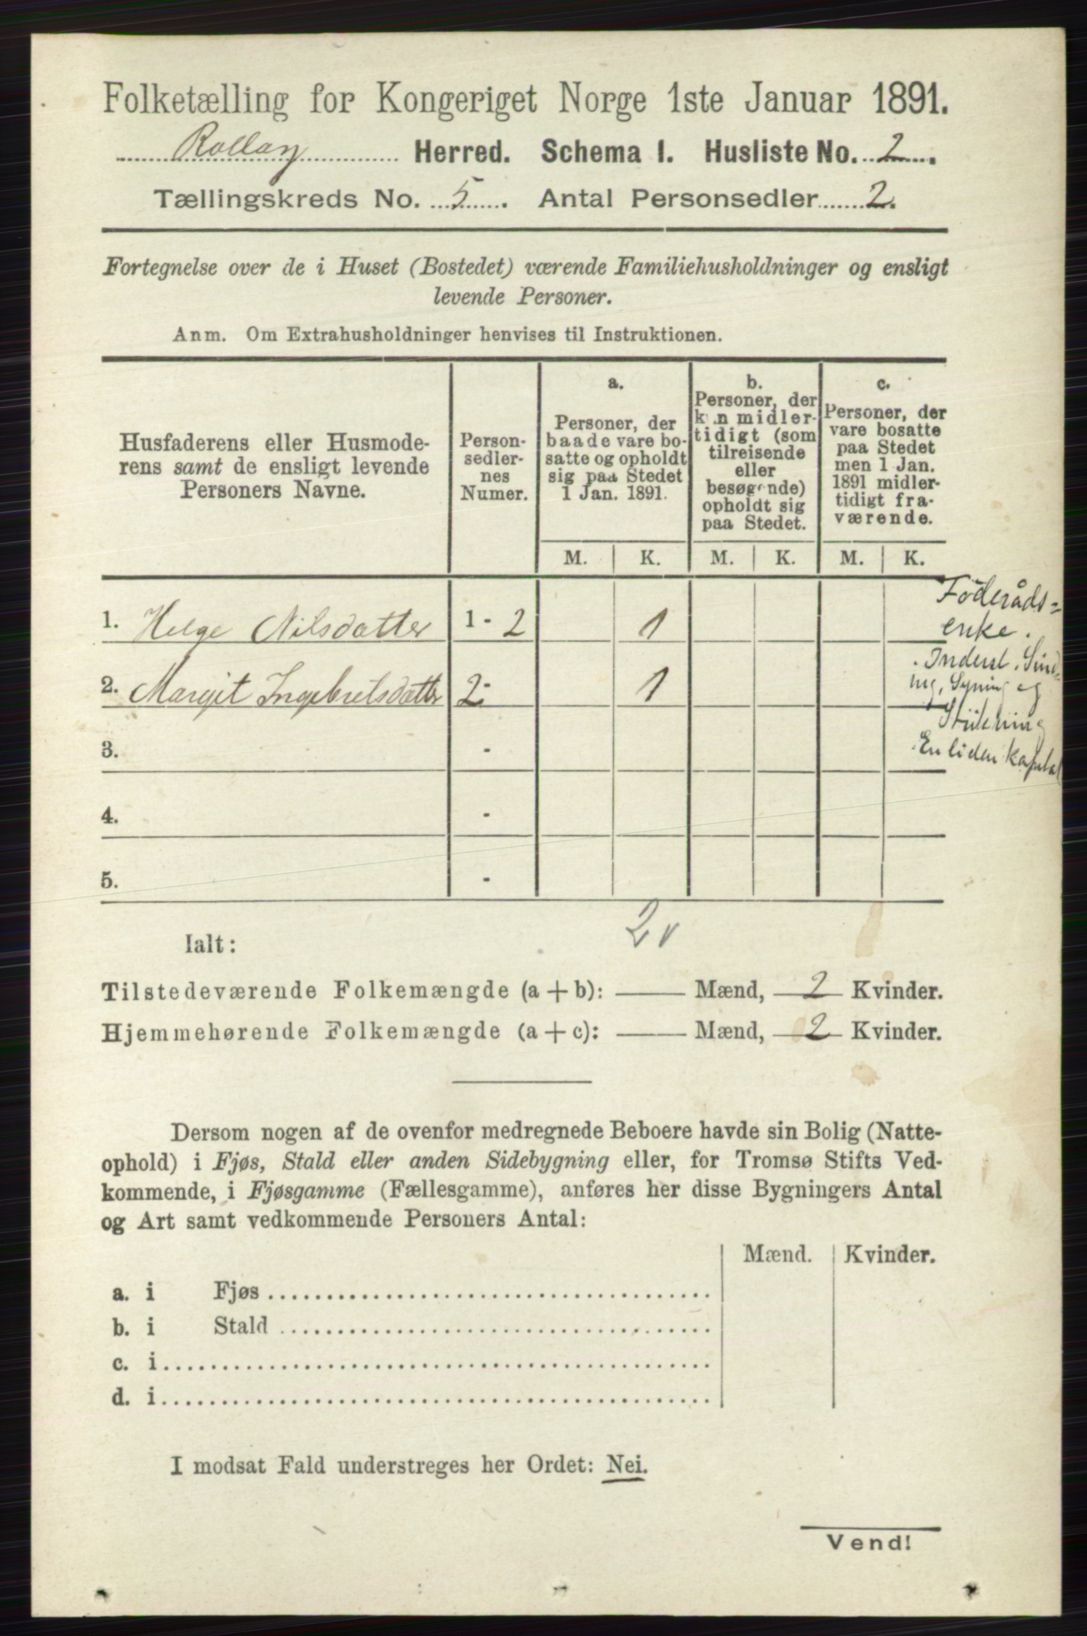 Folketælling for Kongeriget Norge 1ste Januar 1891.
Rollag Herred. Schema I. Husliste No. 2.
Tællingskreds No. 5. Antal Personsedler 2.
Fortegnelse over de i Huset (Bostedet) værende Familiehusholdninger og ensligt
levende Personer.
Anm. Om Extrahusholdninger henvises til Instruktionen.
Husfaderens eller Husmode-
rens samt de ensligt levende
Personers Navne.
Person-
sedler-
nes
Numer.
a.
Personer, der
baade vare bo-
satte og opholdt
sig paa Stedet
1 Jan. 1891.
b.
Personer, der
kun midler-
tidigt (som
tilreisende
eller
besøgende)
opholdt sig
paa Stedet.
c.
Personer, der
vare bosatte
paa Stedet
men 1 Jan.
1891 midler-
tidigt fra-
værende.
M. K. M. K. M. K.
1. Helge Nilsdatter 1 - 2 1
Föderåds=
enke.
2. Margit Ingebretsdatter 2 - 1
Inderst. Sind
ing, Syning og
Strikning
En liden kapital
3. -
4. -
5. -
Ialt: 2 v
Tilstedeværende Folkemængde (a + b): — Mænd, 2 Kvinder.
Hjemmehørende Folkemængde (a + c): — Mænd, 2 Kvinder.
Dersom nogen af de ovenfor medregnede Beboere havde sin Bolig (Natte-
ophold) i Fjøs, Stald eller anden Sidebygning eller, for Tromsø Stifts Ved-
kommende, i Fjøsgamme (Fællesgamme), anføres her disse Bygningers Antal
og Art samt vedkommende Personers Antal:
Mænd. Kvinder.
a. i Fjøs
b. i Stald
c. i
d. i
I modsat Fald understreges her Ordet: Nei.
Vend!